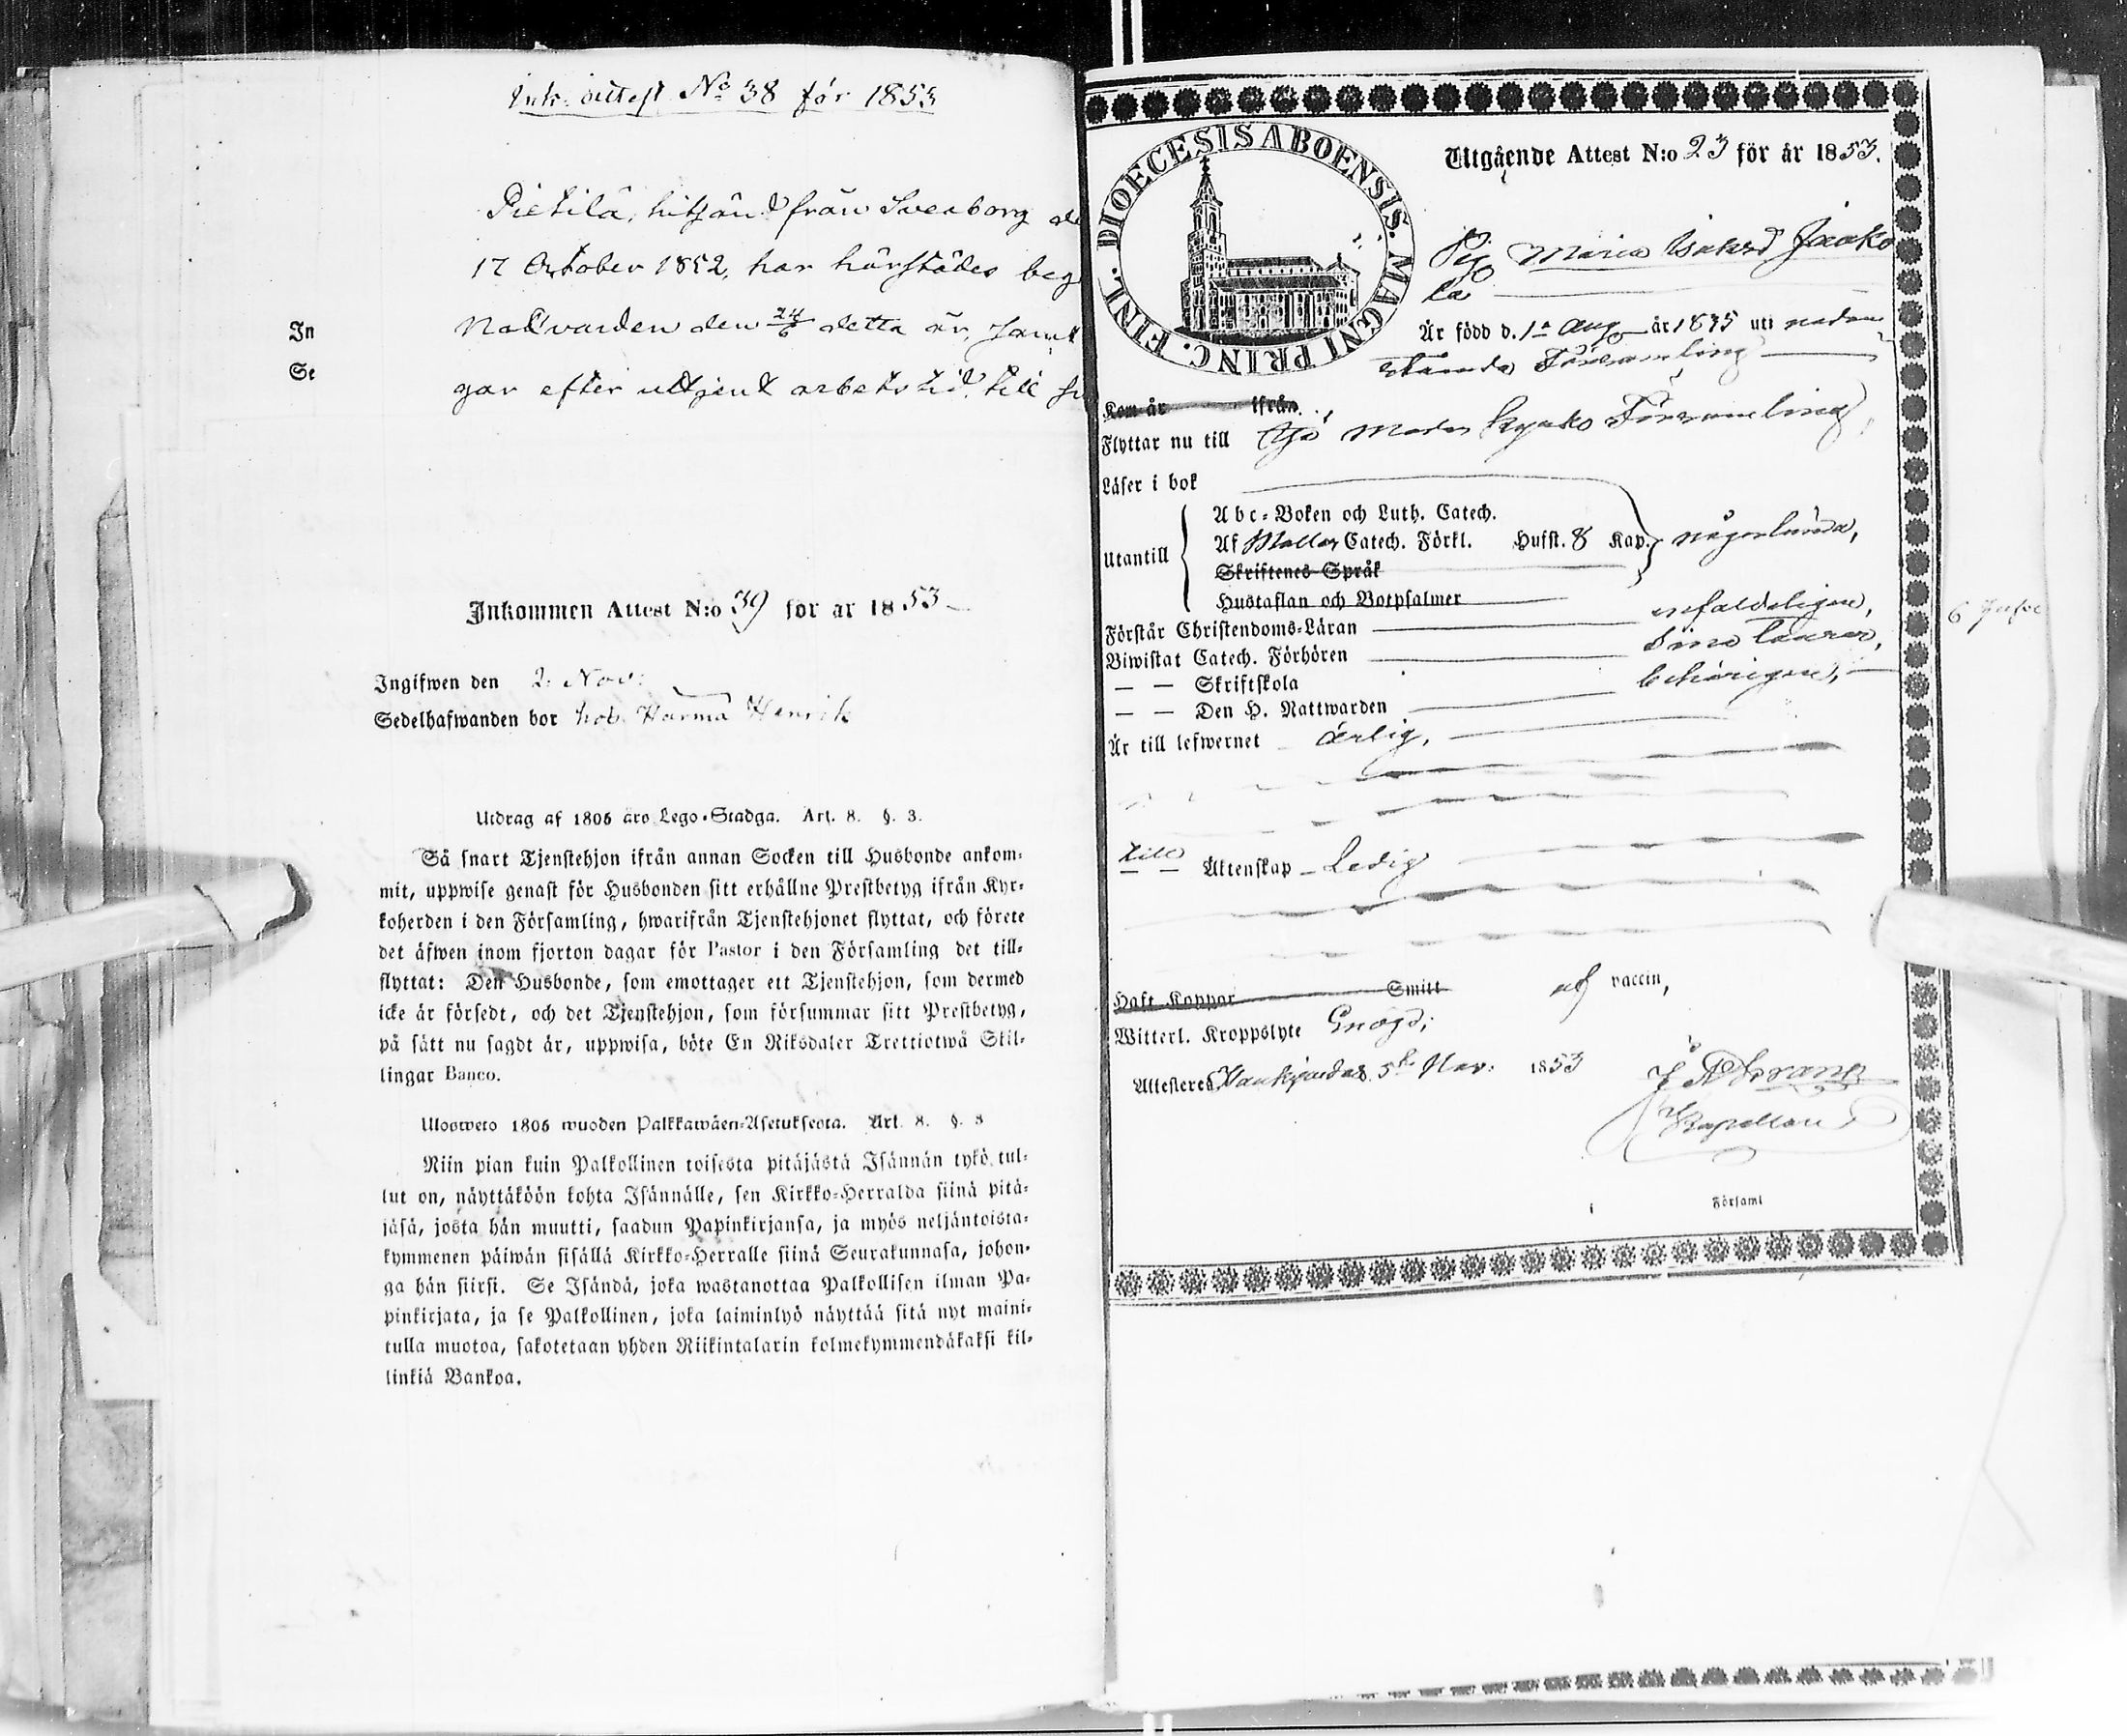 Ink. attest No 38 för 1853
Pietilä, hitsänd från Sveaborg de
17 October 1852, har härstädes beg
Nattvarden den 24/6 detta år, samt
gar efter uttjent arbetstid till
In
Se
Inkommen Attest N:o 39 för år 1853
Ingifwen den 2. Nov:
Sedelhafwanden bor hos Härmä Henrik
Utdrag af 1805 års Lego-Stadga. Art. 8. §. 3.
Så snart Tjenstehjon ifrån annan Socken till Husbonde ankom-
mit, uppwise genast för Husbonden sitt erhållne Prestbetyg ifrån Kyr-
koherden i den Församling, hwarifrån Tjenstehjonet flyttat, och förete
det äfwen inom fjorton dagar för Pastor i den Församling det till-
flyttat: Den Husbonde, som emottager ett Tjenstehjon, som dermed
icke är försedt, och det Tjenstehjon, som försummar sitt Prestbetyg,
på sätt nu sagdt är, uppwisa, böte En Riksdaler Trettiotwå Skil-
lingar Banco.
Ulosweto 1805 wuoden Palkkawäen-Asetuksesta. Art. 8. §. 3
Niin pian kuin Palkollinen toisesta pitäjästä Isännän tykö tul-
lut on, näyttäköön kohta Isännälle, sen Kirkko-Herralda siinä pitä-
jäsä, josta hän muutti, saadun Papinkirjansa, ja myös neljäntoista-
kymmenen päiwän sisällä Kirkko-Herralle siinä Seurakunnasa, johon-
ga hän siirsi. Se Isändä, joka wastanottaa Palkollisen ilman Pa-
pinkirjata, ja se Palkollinen, joka laiminlyö näyttää sitä nyt maini-
tulla muotoa, sakotetaan yhden Riikintalarin kolmekymmendäkaksi kil-
linkiä Bankoa.
DIOECESIS ABOENSIS. MAGNI PRINC. FINL.
Utgående Attest N:o 23 för år 1853.
Pig Maria Jaako
la
Är född d. 1 Aug år 1835 uti nedan
stående Församling
Kom år ifrån
Flyttar nu till Kyrko Församling,
Läser i bok
Utantill
Abc-Boken och Luth. Catech.
Af Catech. Förkl. Husst. 8 Kap. någorlunda,
Skriftenes Språk
Hustaflan och Botpsalmer
Förstår Christendoms-Läran enfaldeligen,
Biwistat Catech. Förhören sina
— — Skriftskola
— — Den H. Nattwarden behörigen,
Är till lefwernet ärlig,
till
— — Äktenskap Ledig
Haft Koppor Smitt af vaccin,
Witterl. Kroppslyte
Attesteres 5 Nov: 1853
Kapellan
Församl